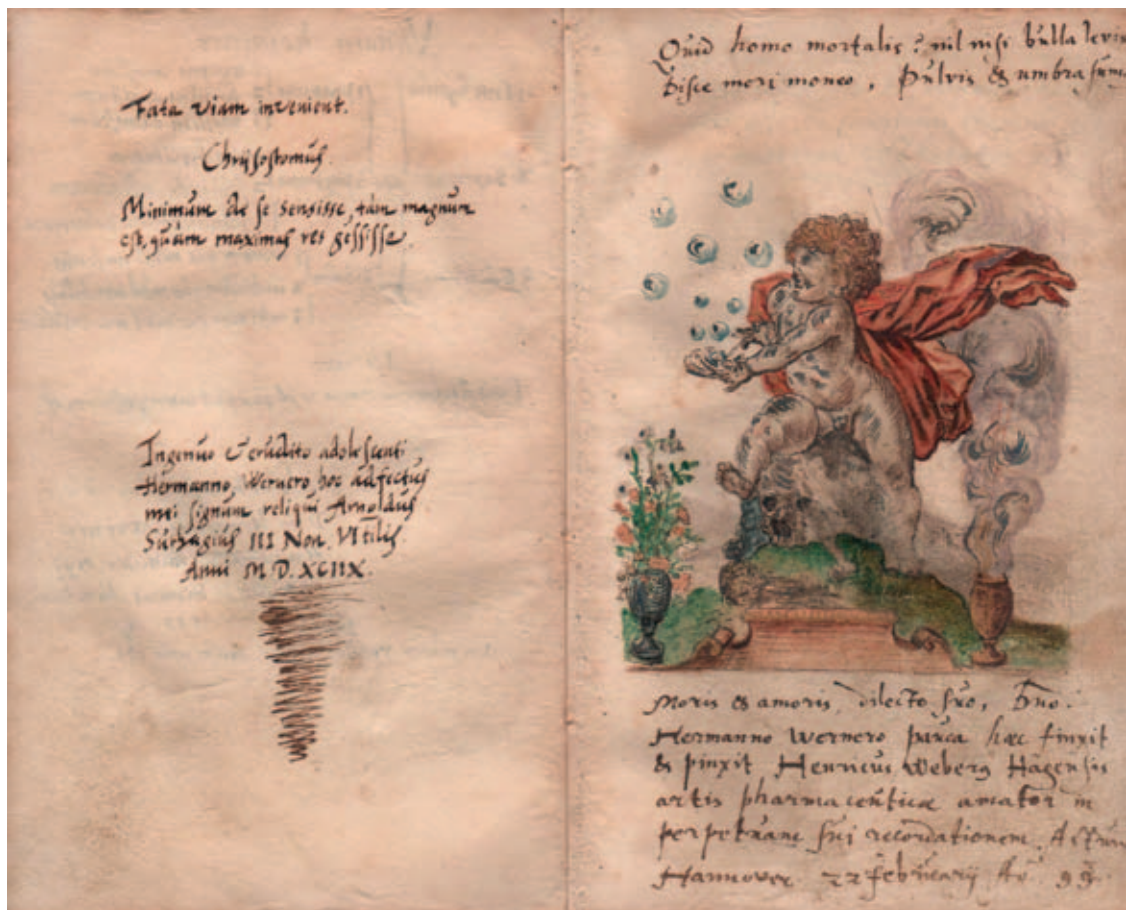 Fata viam invenient.
Chrijsostomus.
Minimum de se sensisse, tam magnum
est, quam maximas res gessisse.
Ingenuo & erudito adolescenti
Hermanno Wernero hoc adfectus
mei signum reliqui Arnoldus
III Non.
Anni M D. XCIIX.
Quid homo mortalis? nil nisi bulla levis
Disce mori moneo, Pulvis & umbra sumus
Moris & amoris, dilecto suo, Dno.
Hermanno Wernero pauca haec finxit
& pinxit Henricus Weberg Hagensis
artis pharmaceuticae amator in
perpetuam sui recordationem. Actum
Hannover 22 februarij Ao 99.